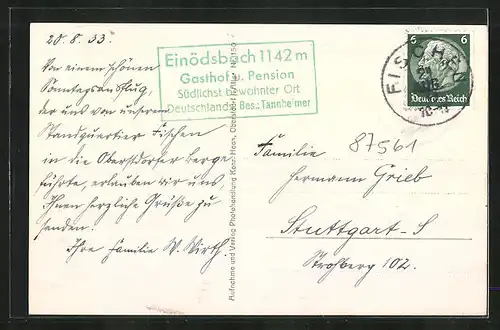 20.8.33.
Von einem schönen
Sonntagsausflug,
der uns von unserem
Standquartier Fischen
in die Oberstdorfer Berge
führte, erlauben wir uns
Ihnen herzliche Grüße zu
senden.
Ihre Familie W. Wirth.
Einödsbach 1142 m
Gasthof u. Pension
Südlichst bewohnter Ort
Deutschlands Bes.: Tannheimer
Aufnahme und Verlag Photohandlung Haas, Oberstdorf
6 6
Deutsches Reich
FISCHEN
87561
Familie
Hermann Grieb
Stuttgart-S
Strohberg 102.